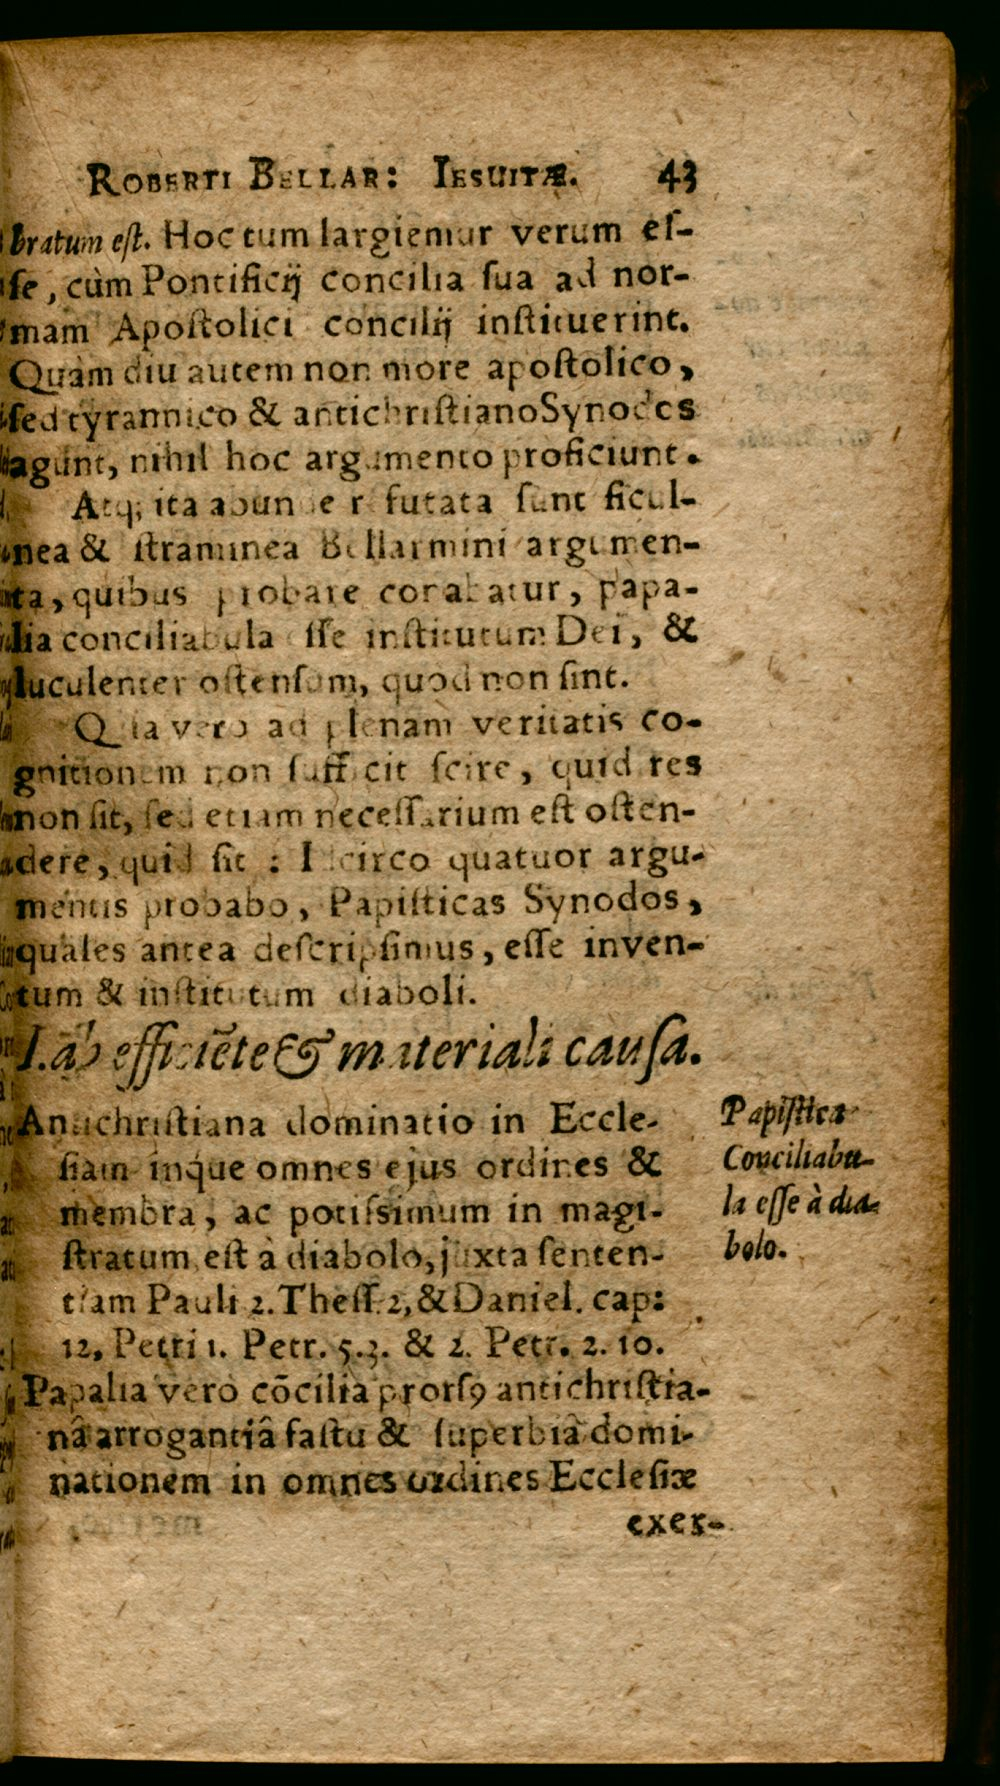 ROBERTI BELLAR: IESUITÆ. 43
bratum eſt. Hoc tum largiemur verum eſ-
ſe, cùm Pontificij concilia ſua ad nor-
mam Apoſtolici concilij inſtituerint.
Quàm diu autem non more apoſtolico,
ſed tyrannico & antichriſtiano Synodos
agunt, nihil hoc argumento proficiunt.
Atq; ita abunde refutata ſunt ficul-
nea & ſtraminea Bellarmini argumen-
ta, quibus probare conabatur, papa-
lia conciliabula eſſe inſtitutum Dei, &
luculenter oſtenſum, quod non ſint.
Quia vero ad plenam veritatis co-
gnitionem non ſufficit ſcire, quid res
non ſit, ſed etiam neceſſarium eſt oſten-
dere, quid ſit : Idcirco quatuor argu-
mentis probabo, Papiſticas Synodos,
quales antea deſcripſimus, eſſe inven-
tum & inſtitutum diaboli.
I. ab efficiẽte & materiali cauſa.
Antichriſtiana dominatio in Eccle-
ſiam inq́ue omnes ejus ordines &
membra, ac potiſsimum in magi-
ſtratum eſt à diabolo, juxta ſenten-
tiam Pauli 2. Theſſ. 2, & Daniel. cap:
12, Petri 1. Petr. 5.3. & 2. Petr. 2. 10.
Papalia verò cõcilia prorſꝰ antichriſtia-
nâ arrogantiâ faſtu & ſuperbiâ domi-
nationem in omnes ordines Eccleſiæ
exer-
Papiſtica
Conciliabu-
la eſſe à dia-
bolo.